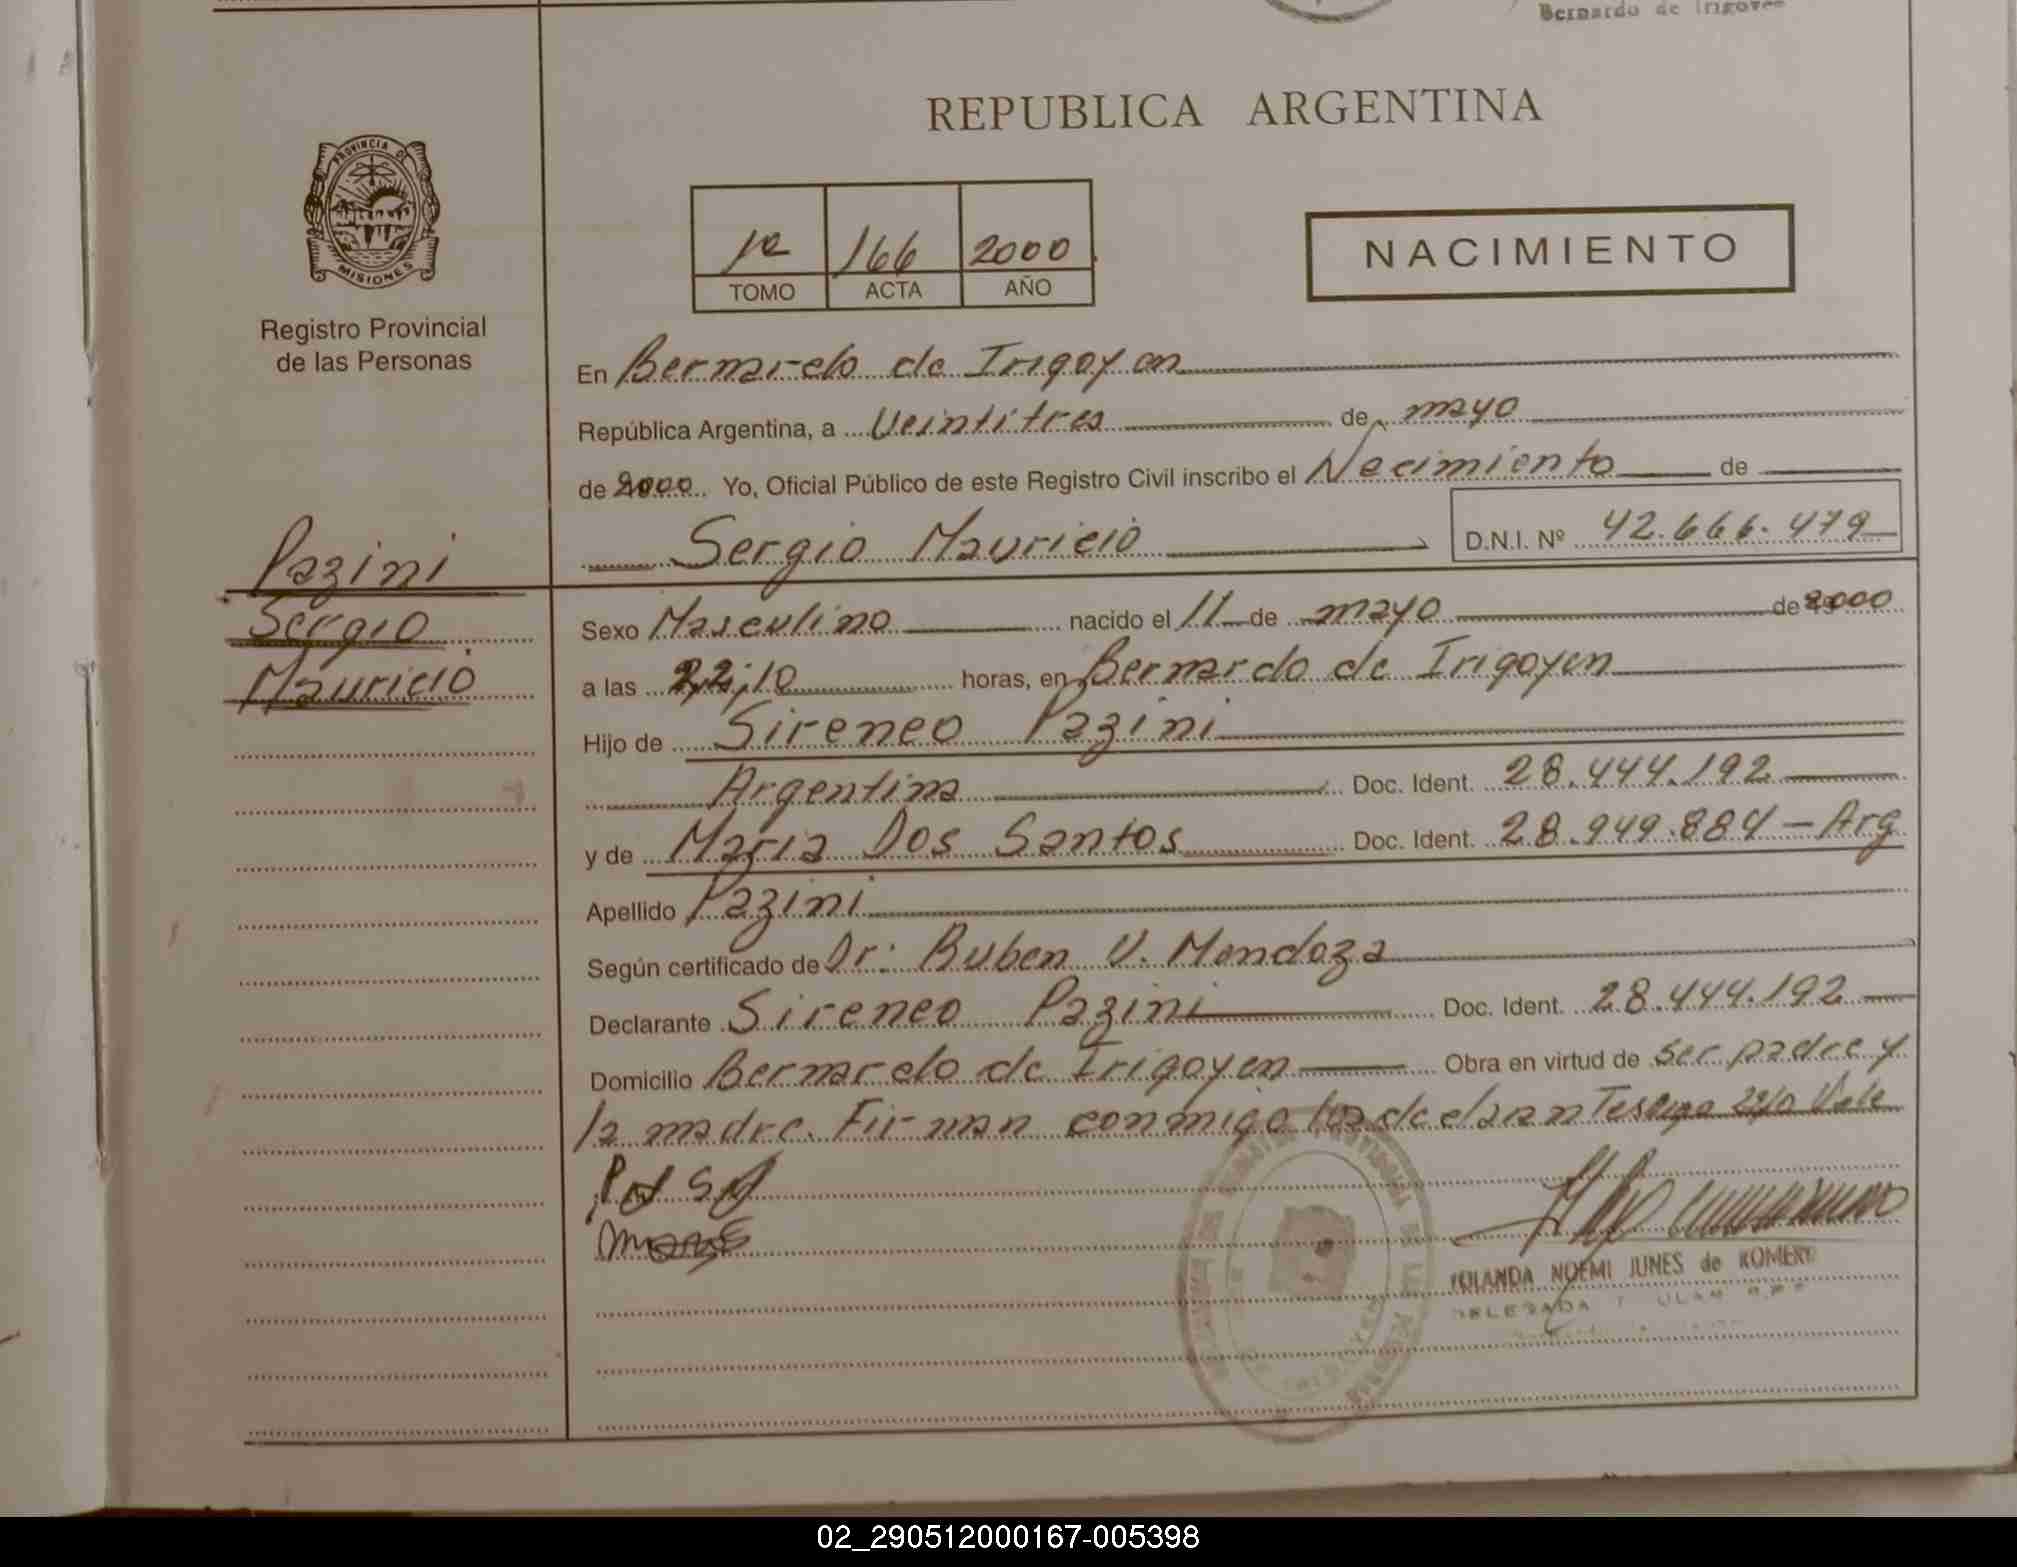 Bernardo de Irigoyen
REPUBLICA ARGENTINA
PROVINCIA DE
MISIONES
Registro Provincial
de las Personas
1º 166 2000
TOMO ACTA AÑO
NACIMIENTO
En Bernardo de Irigoyen
República Argentina, a Veintitres de mayo
de 2000 Yo, Oficial Público de este Registro Civil inscribo el Nacimiento de
Sergio Mauricio D.N.I. Nº 42.666.479
Pazini
Sergio
Mauricio
Sexo Masculino nacido el 11 de mayo de 2000
a las 22,10 horas, en Bernardo de Irigoyen
Hijo de Sireneo Pazini
Argentina Doc. Ident. 28.444.192
y de Maria Dos Santos Doc. Ident. 28.949.884 - Arg
Apellido Pazini
Según certificado de Dr: Ruben V. Mendoza
Declarante Sireneo Pazini Doc. Ident. 28.444.192
Domicilio Bernardo de Irigoyen Obra en virtud de ser padre y
la madre. Firman conmigo Vale
YOLANDA NOEMI JUNES de ROMERO
DELEGADA
02_290512000167-005398